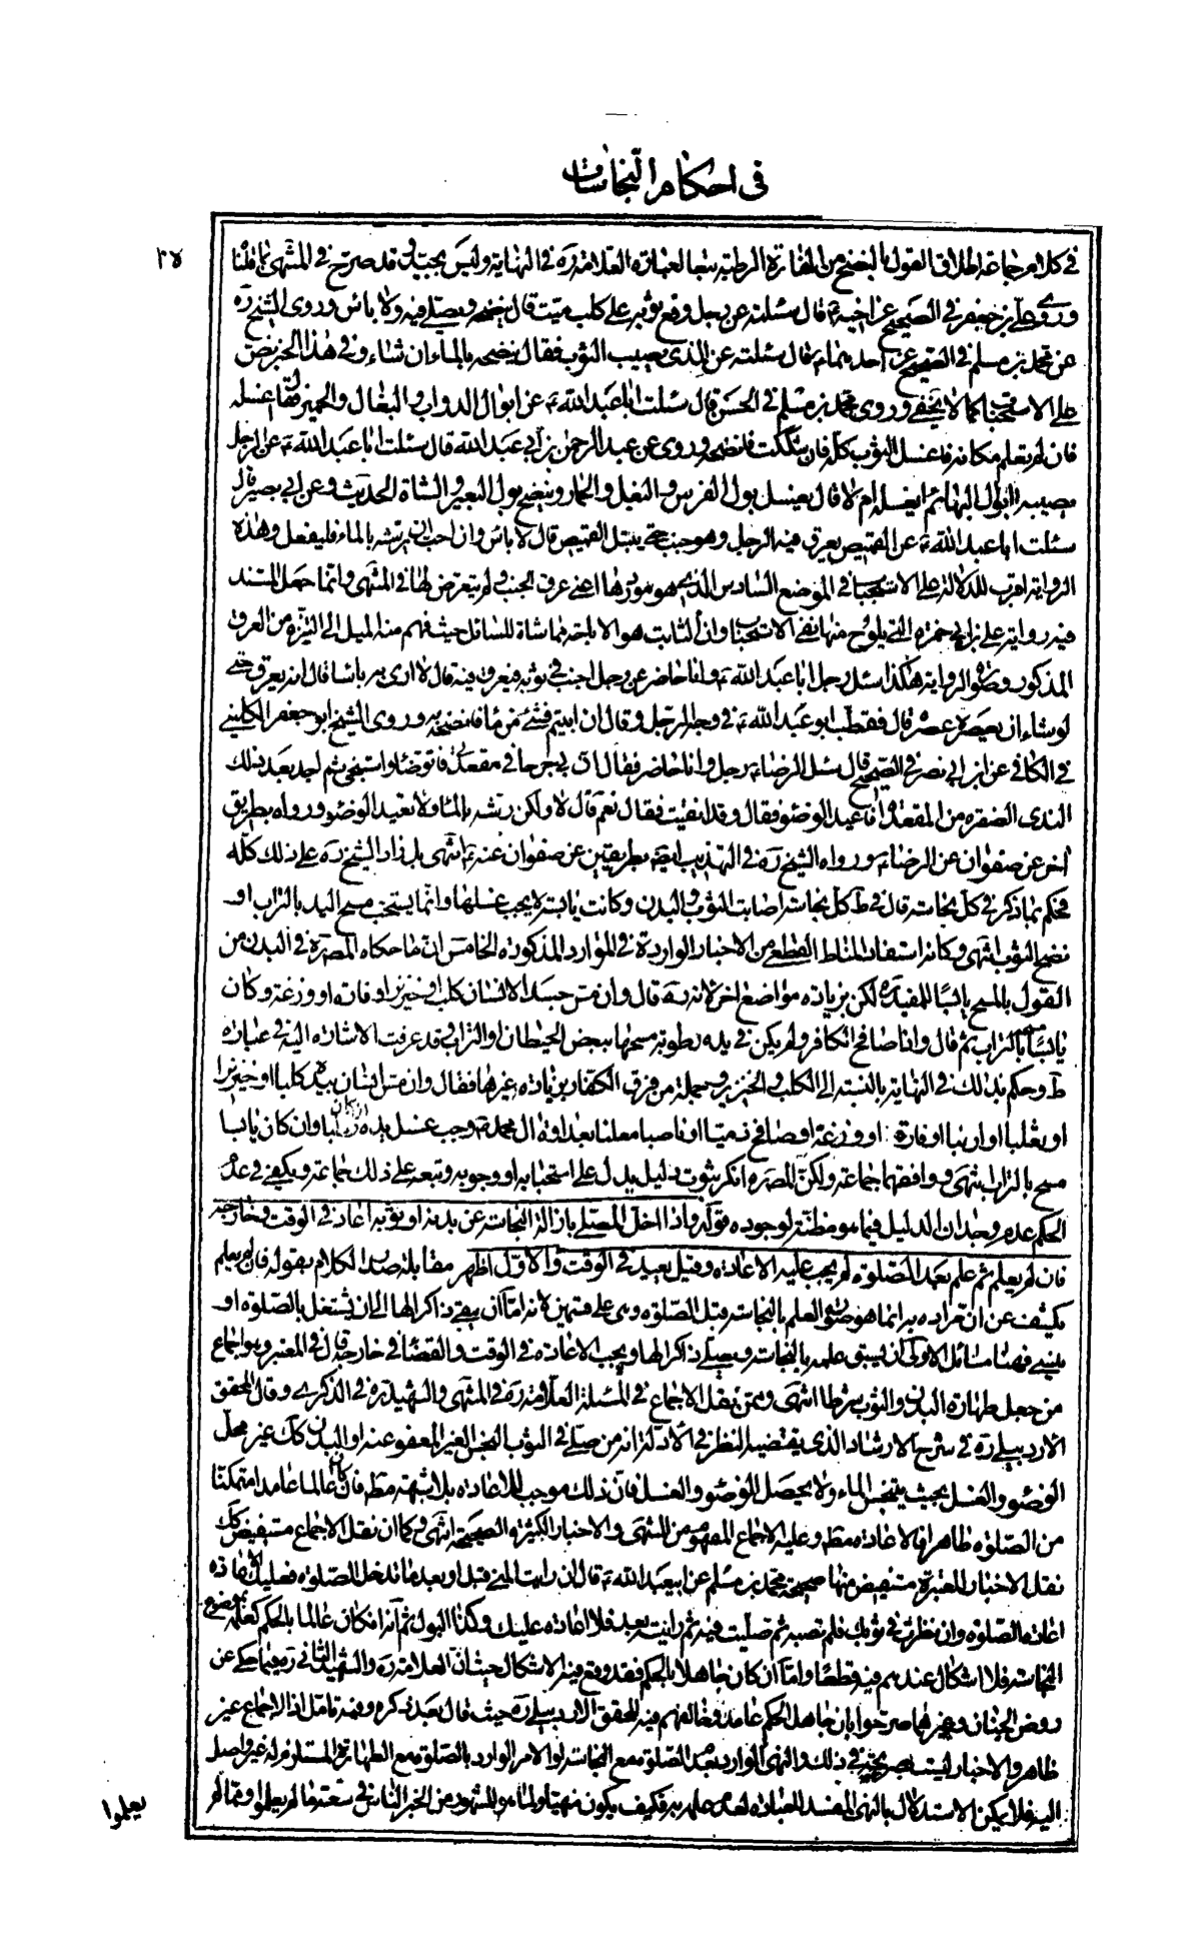 فى احكام النجاسات
في كلام جماعة اطلاق القول بالنضح من الفارة الرطبة تبعا لعبارة العلامة ره في النهاية وليس بجيد وقد صرح في المنتهى بما قلنا
وروى علي بن جعفر في الصحيح عن اخيه ع قال سئلته عن رجل وقع ثوبه على كلب ميت قال ينضحه ويصلي فيه ولا باس وروى الشيخ ره
عن محمد بن مسلم في الصحيح عن احدهما ع قال سئلته عن المذى يصيب الثوب فقال ينضحه بالماء ان شاء وفي هذا الخبر نص
على الاستحباب كما لا يخفى وروى محمد بن مسلم في الحسن قال سئلت ابا عبد الله ع عن ابوال الدواب والبغال والحمير فقال اغسله
فان لم تعلم مكانه فاغسل الثوب كله فان شككت فانضحه وروى عن عبد الرحمن بن أبي عبد الله قال سئلت ابا عبد الله ع عن الرجل
يصيبه ابوال البهائم ايغسله ام لا قال يغسل بول الفرس والبغل والحمار وينضح بول البعير والشاة الحديث وعن ابي بصير قال
سئلت ابا عبد الله ع عن القميص يعرق فيه الرجل وهو جنب حتى يبتل القميص قال لا باس وان احب ان يرشه بالماء فليفعل وهذه
الرواية اقرب للدلالة على الاستحباب في الموضع السادس الذي هو موردها اعنى عرق الجنب ولم يتعرض لها في المنتهى وانما حمل المستند
فيه رواية علي بن ابي حمزة التي يلوح منها نفى الاستحباب وان الثابت هو الاباحة مماشاة للسائل حيث فهم منه الميل الى التنزه من العرق
المذكور وصورة الرواية هكذا سئل رجل ابا عبد الله ع وانا حاضر عن رجل اجنب في ثوبه فيعرق فيه قال لا ارى به باسا قال انه يعرق حتى
لو شاء ان يعصره عصره قال فقطب ابو عبد الله ع في وجه الرجل وقال ان ابيتم فشئ من ماء فانضحه به وروى الشيخ ابو جعفر الكليني
في الكافي عن ابن ابي نصر في الصحيح قال سئل الرضا ع رجل وانا حاضر فقال ان بي جرحا في مقعدتي فاتوضا واستنجي ثم اجد بعد ذلك
الندى الصفرة من المقعدة افاعيد الوضوء فقال وقد انقيت فقال نعم قال لا ولكن رشه بالماء ولا تعيد الوضوء ورواه بطريق
اخر عن صفوان عن الرضا ع ورواه الشيخ ره في التهذيب ايضا بطريقين عن صفوان عنه ع انتهى بل زاد الشيخ ره على ذلك كله
فحكم بما ذكر في كل نجاسة قال في ط كل نجاسة اصابت الثوب والبدن وكانت يابسة لا يجب غسلها وانما يستحب مسح اليد بالتراب او
نضح الثوب انتهى وكانه استفاد المناط القطعي من الاخبار الواردة في الموارد المذكورة الخامس ان ما حكاه المصره في البدن من
القول بالمسح يابسا للمفيد ره لكن بزيادة مواضع اخر لانه ره قال وان مس جسد الانسان كلب او خنزير او فارة او وزغة وكان
يابسا مسحه بالتراب ثم قال واذا صافح الكافر ولم يكن في يده رطوبة مسحها ببعض الحيطان او التراب وقد عرفت الاشارة اليه في عبارة
ط وحكم بذلك في النهاية بالنسبة الى الكلب والخنزير وجملة من فرق الكفار بزيادة غيرها فقال وان مس انسان بيده كلبا او خنزيرا
او ثعلبا او ارنبا او فارة او وزغة او صافح ذميا او ناصبا معلنا بعداوة ال محمد ص وجب غسل يده ان كان رطبا وان كان يابسا
مسح بالتراب انتهى ووافقهما جماعة ولكن المصره انكر ثبوت دليل يدل على استحبابه او وجوبه وتبعه على ذلك جماعة ويكفى في عدم
الحكم عدم وجدان الدليل فيما هو مظنة لوجوده قوله واذا اخل المصلي بازالة النجاسة عن بدنه او ثوبه اعاد في الوقت وخارجه
فان لم يعلم ثم علم بعد الصلوة لم يجب عليه الاعادة وقيل يعيد في الوقت والاول اظهر مقابلة صدر الكلام بقوله فان لم يعلم
يكشف عن ان مراده به انما هو صورة العلم بالنجاسة قبل الصلوة وهى على قسمين لانه اما ان يبقى ذاكرا لها الى ان يشتغل بالصلوة او
ينسى فهنا مسائل الاولى ان يسبق علمه بالنجاسة ويصلي ذاكرا لها ويجب الاعادة في الوقت والقضاء في خارجه قال في المعتبر وهو اجماع
من جعل طهارة البدن والثوب شرطا انتهى وممن نقل الاجماع في المسئلة العلامة ره في المنتهى والشهيد ره في الذكرى وقال المحقق
الاردبيلي ره في شرح الارشاد الذى يقتضيه النظر في الأدلة انه من صلى في الثوب النجس الغير المعفو عنه او البدن كك غير محل
الوضوء والغسل بحيث ينجس الماء ولا يحصل الوضوء والغسل فان ذلك موجب للاعادة بلا شبهة مطم فان كان عالما عامدا متمكنا
من الصلوة طاهرا فالاعادة مطم وعليه الاجماع المفهوم من المنتهى والاخبار الكثيرة الصحيحة انتهى وكما ان نقل الاجماع مستفيض كك
نقل الاخبار المعتبرة مستفيض منها صحيحة محمد بن مسلم عن ابي عبد الله ع قال ان رايت المني قبل او بعد ما تدخل الصلوة فعليك الاعادة
اعادة الصلوة وان نظرت في ثوبك فلم تصبه ثم صليت فيه ثم رايته بعد فلا اعادة عليك وكذا البول ثم انه ان كان عالما بالحكم كعلمه بموضع
النجاسة فلا اشكال عندهم فيه قطعا واما ان كان جاهلا بالحكم فقد وقع فيه الاشكال حيث ان العلامة ره والشهيد الثاني ره فيما حكى عن
روض الجنان وغيرهما صرحوا بان جاهل الحكم عامد وخالفهم فيه المحقق الاردبيلي ره حيث قال بعد ذكره وفيه تامل اذ الاجماع غير
ظاهر والاخبار ليست بصريحة في ذلك والنهى الوارد بعدم الصلوة مع النجاسة او الامر الوارد بالصلوة مع الطهارة المستلزم له غير واصل
اليه فلا يمكن الاستدلال بالنهى المفسد للعبادة لعدم علمه به فكيف يكون منهيا ولما هو المشهور من الخبر الناس في سعة ما لم يعلموا ومما لم
يعلموا